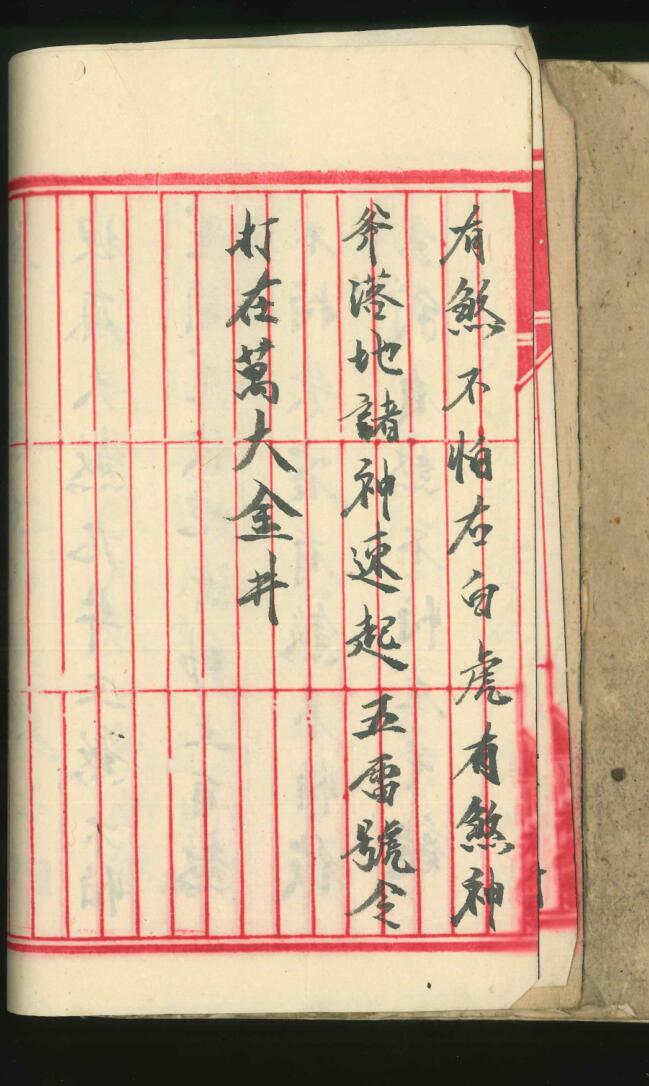 有煞不怕右白虎有煞神
斧落地諸神速起五雷號令
打在萬大金井